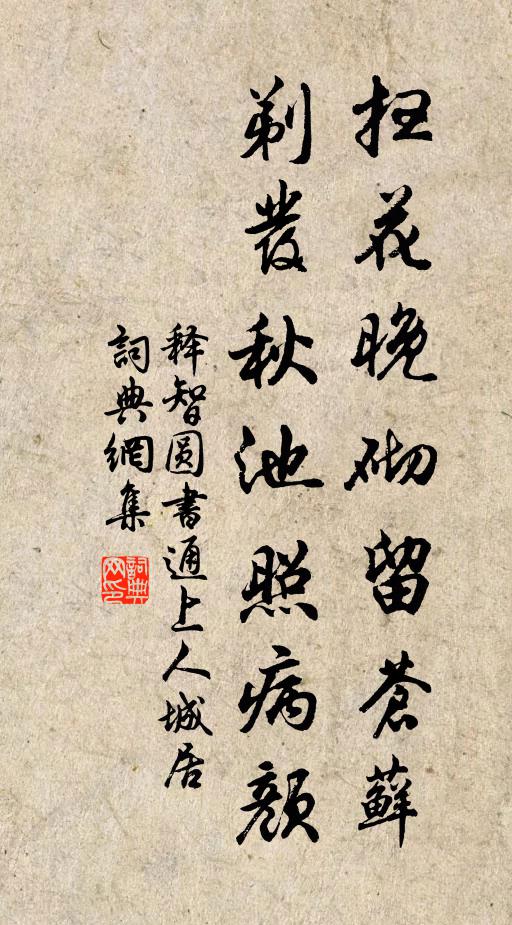 扫花晚砌留苍藓
剃發秋池照病颜
释智圆書通上人城居
詞典網集
詞典
网印